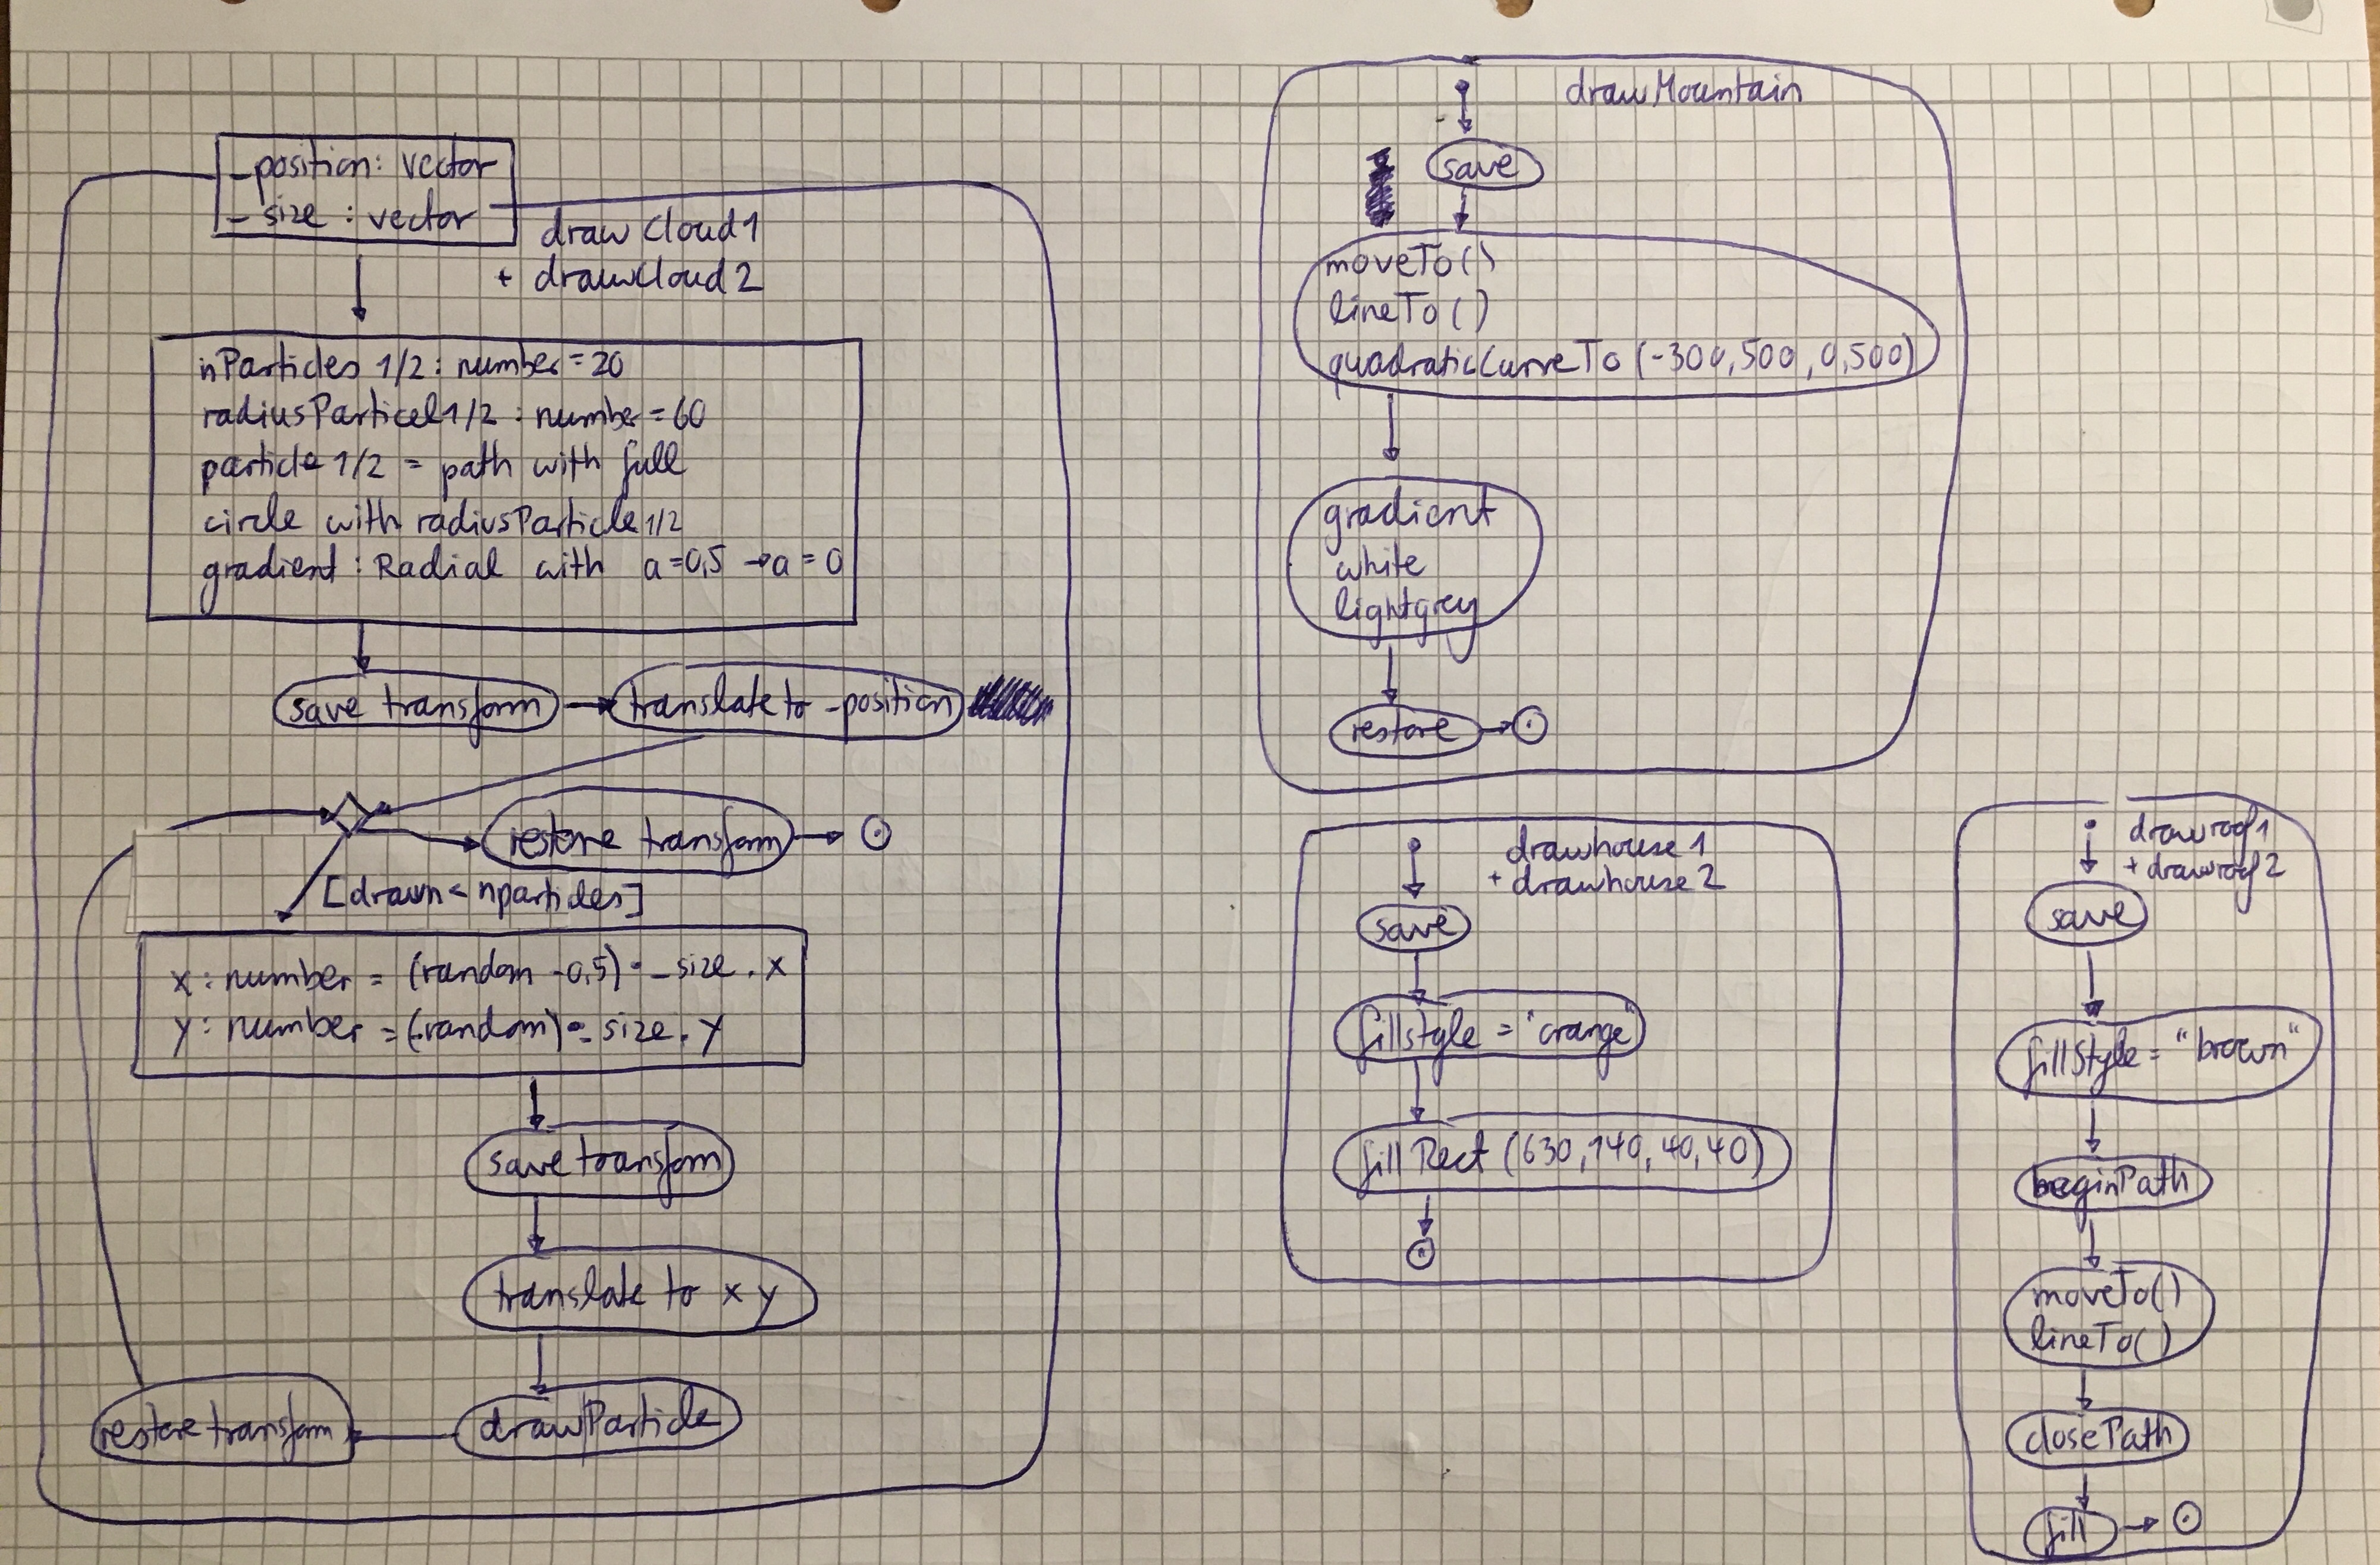 _position: vector
_size : vector
drawCloud1
+ drawCloud2
nParticles 1/2 : number = 20
radiusParticel1/2 : number = 60
particle 1/2 = path with full
circle with radiusParticle 1/2
gradient : Radial with a=0,5 → a = 0
save transform
translate to _position
restore transform
[drawn < nparticles]
x : number = (random - 0,5) * _size . x
y : number = (random) * _size . y
save transform
translate to x y
drawParticle
restore transform
drawMountain
save
moveTo()
lineTo()
quadraticCurveTo (-300, 500, 0, 500)
gradient
white
lightgrey
restore
drawhouse 1
+ drawhouse 2
save
fillstyle = "orange"
fillRect (630, 140, 40, 40)
drawroof1
+ drawroof 2
save
fillStyle = "brown"
beginPath
moveTo()
lineTo()
closePath
fill